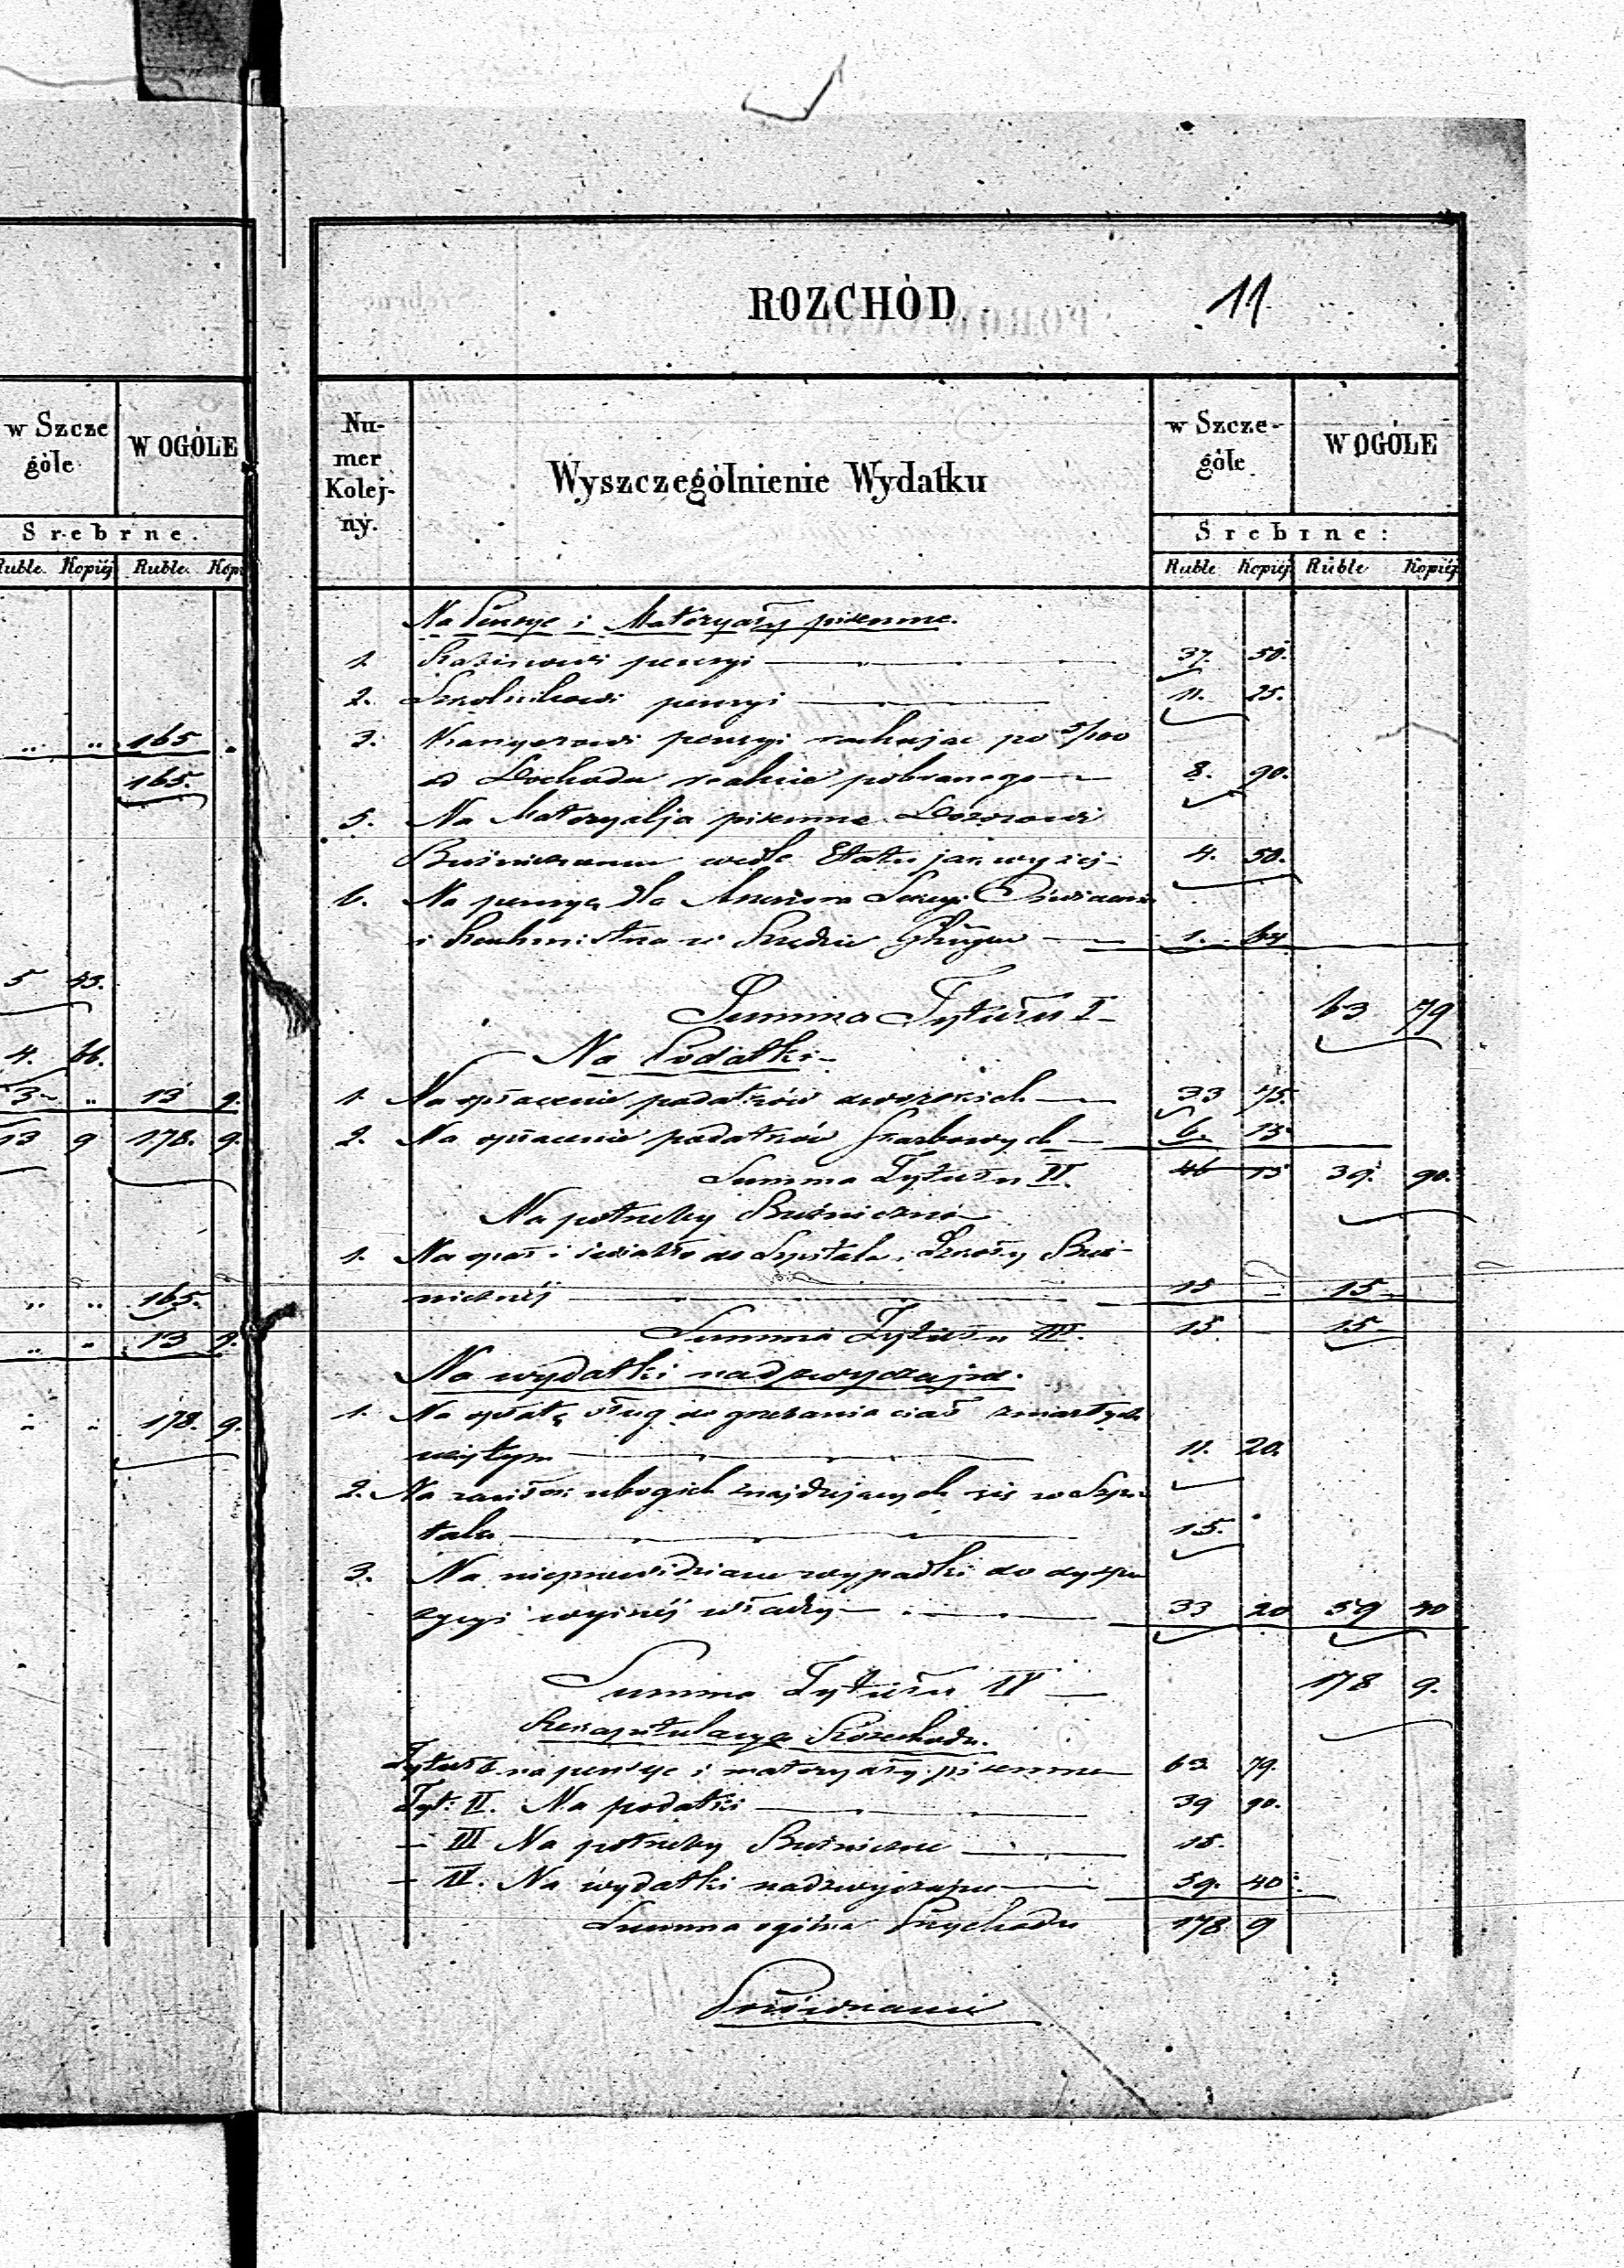 ROZCHÓD. 11
w Szczególe W OGÓLE
Srebrne.
Ruble. Kopiéj Ruble. Kopi
.. .. 165 .
165.
5 43.
4. 66.
3 .. 13 9.
13 9 178. 9.
.. .. 165.
.. . 13 9.
178. 9.
Numer Kolejny. Wyszczególnienie Wydatku w Szczególe W OGÓLE
Srebrne:
Ruble Kopiéj Ruble Kopiéj
Na Pensye i Materyały piśmienne.
1. Rabinowi pensyi 37. 50.
2. Szkolnikowi pensyi 11. 25.
3. Kasyerowi pensyi rachując po 5/100
od Dochodu realnie pobranego 8. 90.
5. Na Materyalja piśmienne Dozorowi
Bużniczemu wedle Etatu jak wyżej 4. 50.
6. Na pensyę dla Assessora Sekcyi
i Rachmistrza w Rządzie Gubern 1. 64
Summa Tytułu I 63 79
Na Podatki
1. Na opłacenie podatków dworskich 33 75.
2. Na opłacenie podatków Skarbowych 6. 15
Summa Tytułu II. 46 15 39. 90.
Na potrzeby Bużniczne
1. Na opał i światło do Szpitala i Szkoły Buż-
nicznéj 15 - 15 -
Summa Tytułu III. 15. - 15 -
Na wydatki nadzwyczajne.
1. Na opłatę sług do grzebania ciał zmarłych
użytym 11. 20.
2. Na zasiłek ubogich znajdujących się w Szpi-
talu 15.
3. Na nieprzewidziane wypadki do dyspo
zycyi wyższéj władzy 33 20 59 40
Summa Tytułu IV 178 9.
Rekapitulacya Rozchodu.
Tytuł I. na pensye i materyały piśmienne 63. 79.
Tyt: II. Na podatki 39 90.
- III Na potrzeby Bużniczne 15.
- IV. Na wydatki nadzwyczajne 59. 40.
Summa ogólna Przychodu 178 9
Porównanie